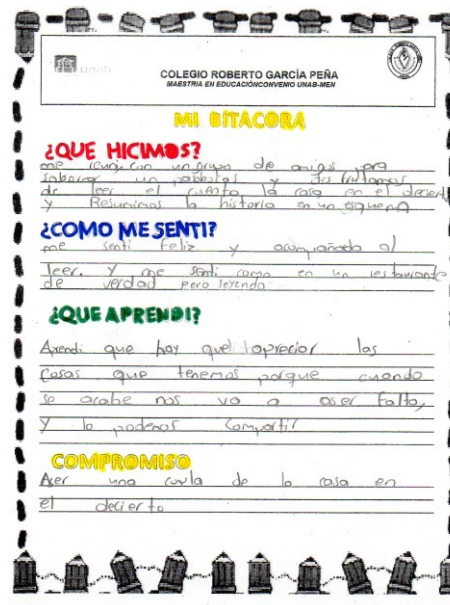 unab
COLEGIO ROBERTO GARCÍA PEÑA
MAESTRIA EN EDUCACIÓNCONVENIO UNAB-MEN
MI BITACORA
¿QUE HICIMOS?
me reuni con un grupo de amigos para
saborear un y disfrutamos
de leer el cuento la casa en el deciert
y Resumimos la historia en un esquema
¿COMO ME SENTI?
me senti feliz y acompañado al
leer. Y me senti como en un restaurante
de verdad pero leyendo
¿QUE APRENDI?
Aprendi que hay que apreciar las
cosas que tenemos porque cuando
se acabe nos va a aser falta,
y lo podemos compartir
COMPROMISO
Aser una de la casa en
el decierto